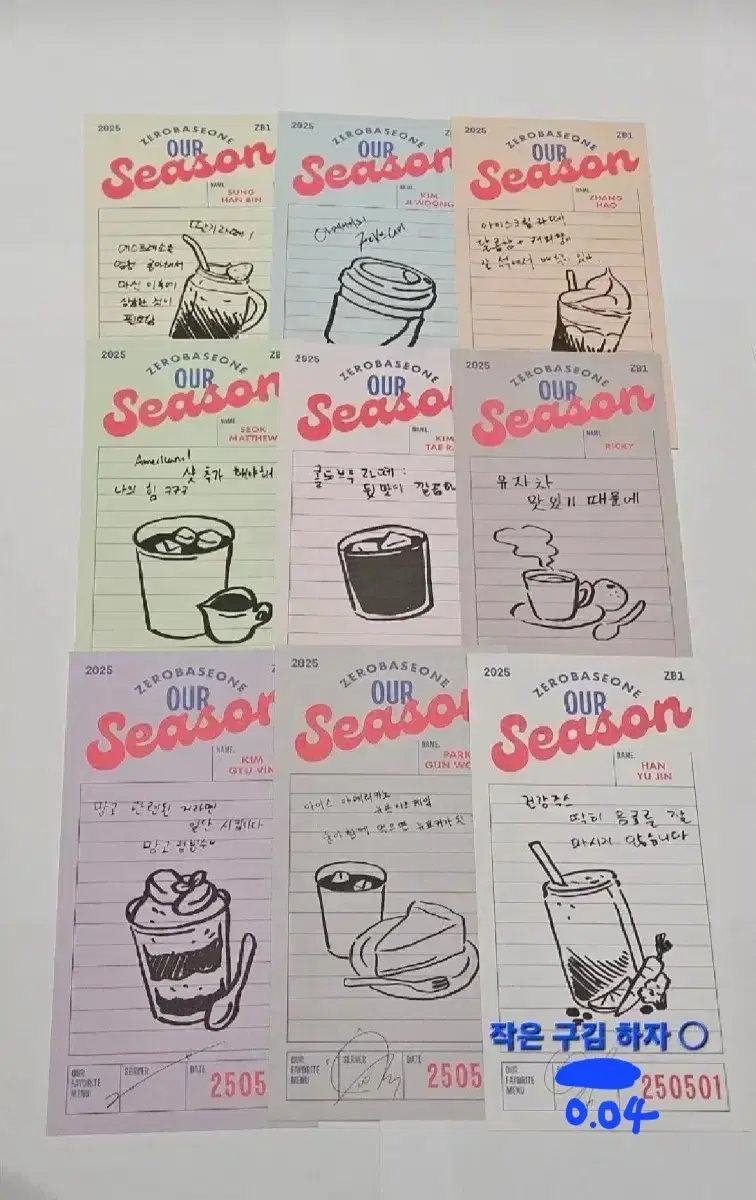 2025
ZB1
ZEROBASEONE
OUR
Season
NAME.
SUNG
HAN BIN
딸기라떼!
에스프레소를
마신 이후에
상큼한 것이
필요함
2025
ZEROBASEONE
OUR
Season
KIM
JI WOONG
2025
ZB1
ZEROBASEONE
OUR
Season
NAME.
ZHANG
HAO
아이스크림 라떼
달콤함 + 커피향이
잘 섞여서 맛있 있고
2025
ZB
ZEROBASEONE
OUR
Season
NAME.
SEOK
MATTHEW
샷 추가 해야해
나의 힘 ㅋㅋㅋ
2025
ZEROBASEONE
OUR
Seaso
NAME.
KIM
TAE R
콜드브루 라떼:
뒷맛이 깔끔하
2025
ZB1
ZEROBASEONE
OUR
Season
NAME.
RICKY
유자차
맛있기 때문에
2025
ZEROBASEONE
OUR
Season
NAME.
KIM
GYU VIN
망고 관련된 거라면
일단 시킵니다
2025
ZEROBASEONE
OUR
Season
NAME.
PARK
GUN WO
아이스 아메리카노
뉴욕치즈케잌
둘이 함께 먹으면
2025
ZB1
ZEROBASEONE
OUR
Season
NAME.
HAN
YU JIN
건강주스
딱히 음료를 잘
마시지 않습니다
작은 구김 하자 ○
OUR
FAVORITE
MENU
SERVER
DATE
2505
OUR
FAVORITE
MENU
SERVER
DATE
2505
OUR
FAVORITE
MENU
250501
0.04